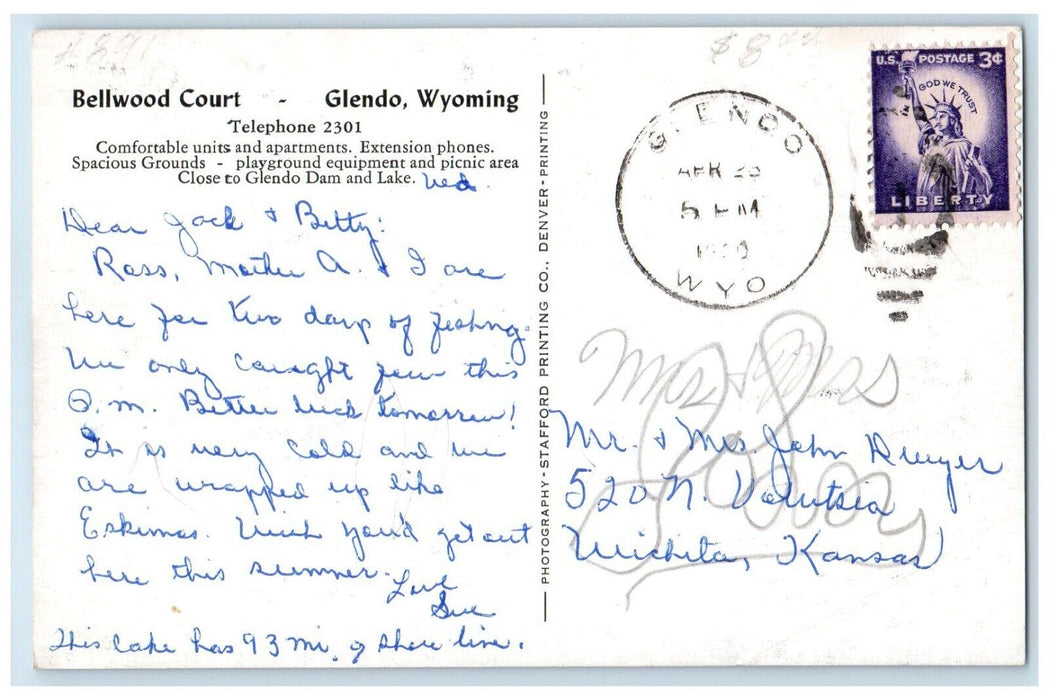 Bellwood Court - Glendo, Wyoming
Telephone 2301
Comfortable units and apartments. Extension phones.
Spacious Grounds - playground equipment and picnic area
Close to Glendo Dam and Lake.
Wed.
Dear Jack & Betty:
Ross, Mother A. & I are
here for two days of fishing.
We only caught four this
P.m. Better luck tomorrow!
It is very cold and we
are wrapped up like
Eskimos. Wish you'd get out
here this summer.
Love
Sue
This lake has 93 mi. of shore line.
PHOTOGRAPHY-STAFFORD PRINTING CO., DENVER-PRINTING
$8
GLENDO
APR
5 PM
WYO
U.S. POSTAGE 3¢
GOD WE TRUST
LIBERTY
Mr. & Mrs John
520 N. Volutsia
Wichita, Kansas